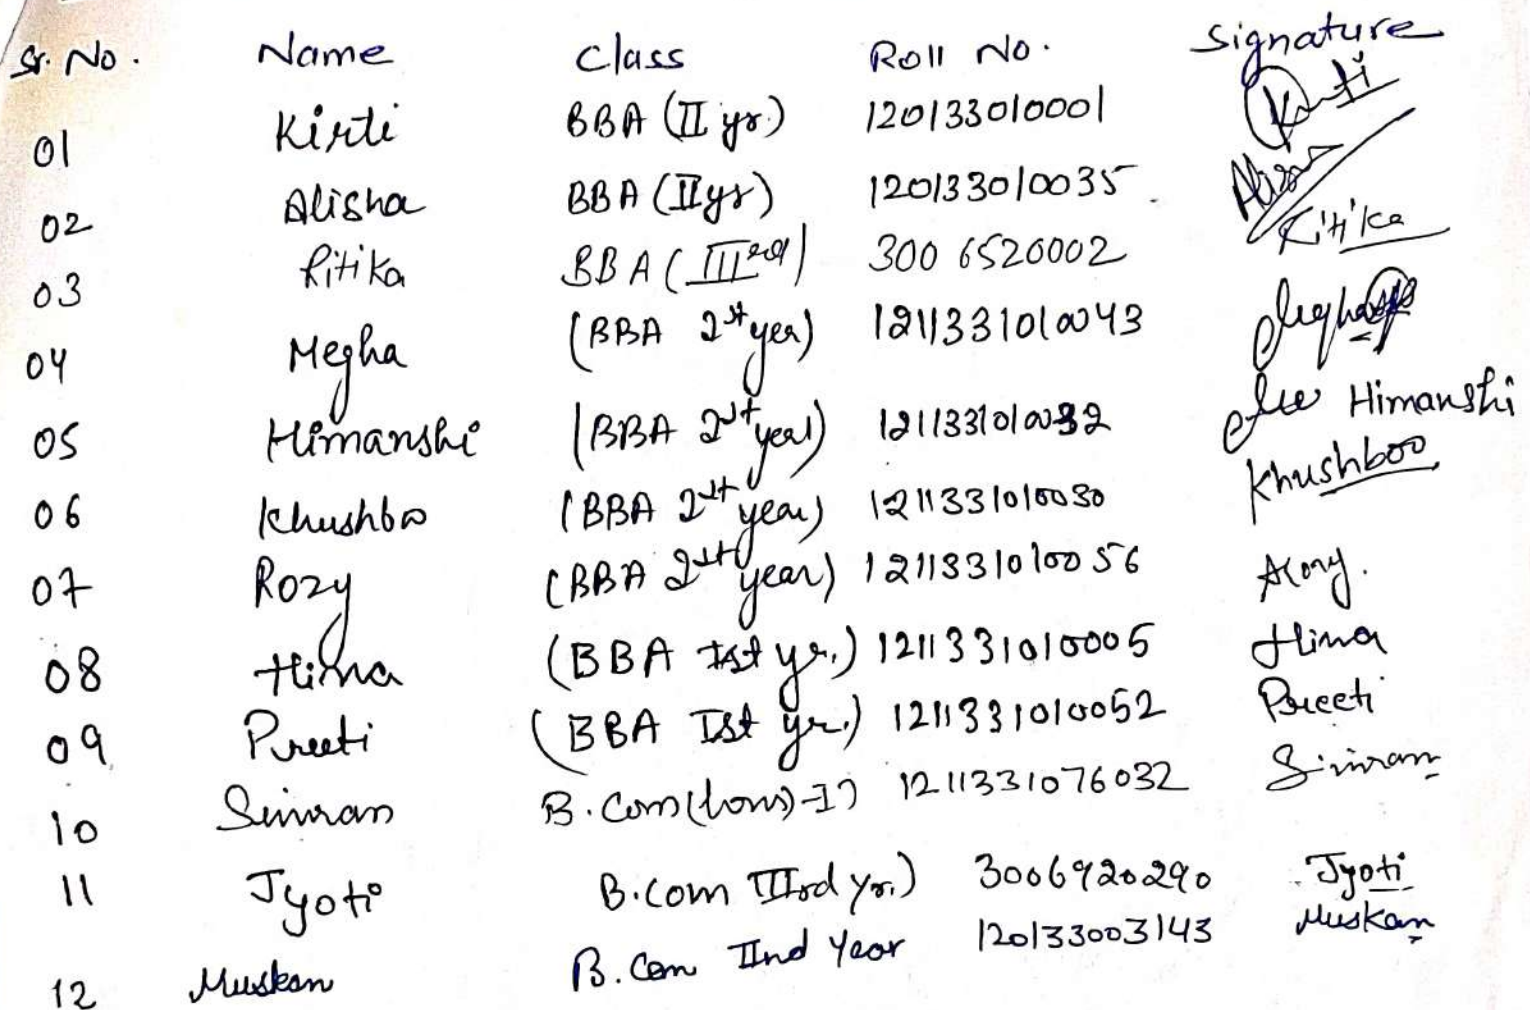 Sr. No. Name Class Roll No. Signature
01 Kirti BBA (II yr.) 120133010001 Kirti
02 Alisha BBA (II yr) 120133010035 Alisha
03 Ritika BBA (III rd) 300 6520002 Ritika
04 Megha (BBA 2st year) 1211331010043 Megha
05 Himanshi (BBA 2st year) Himanshi
06 Khushboo (BBA 2st year) 1211331010030 Khushboo
07 Rozy (BBA 2st year) 1211331010056 Rozy.
08 Hima (BBA Ist yr.) 1211331010005 Hima
09 Preeti (BBA Ist yr.) 1211331010052 Preeti
10 Simran B.Com(Hons)-I 1211331076032 Simran
11 Jyoti B.Com IIIrd yr.) 3006920290 Jyoti
12 Muskan B.Com IInd Year 120133003143 Muskan